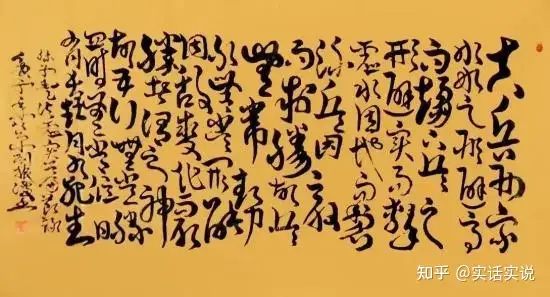 夫兵形象
水水之形避高
而趨下兵之
形避实而擊
虚水因地而制
流兵因敌
而制勝故兵
無常势
水無常形能
因敌變化而取
勝者谓之神
故五行無常勝
四時無常位日
有短長月有死生
孙子兵法虚实篇
知乎 @实话实说